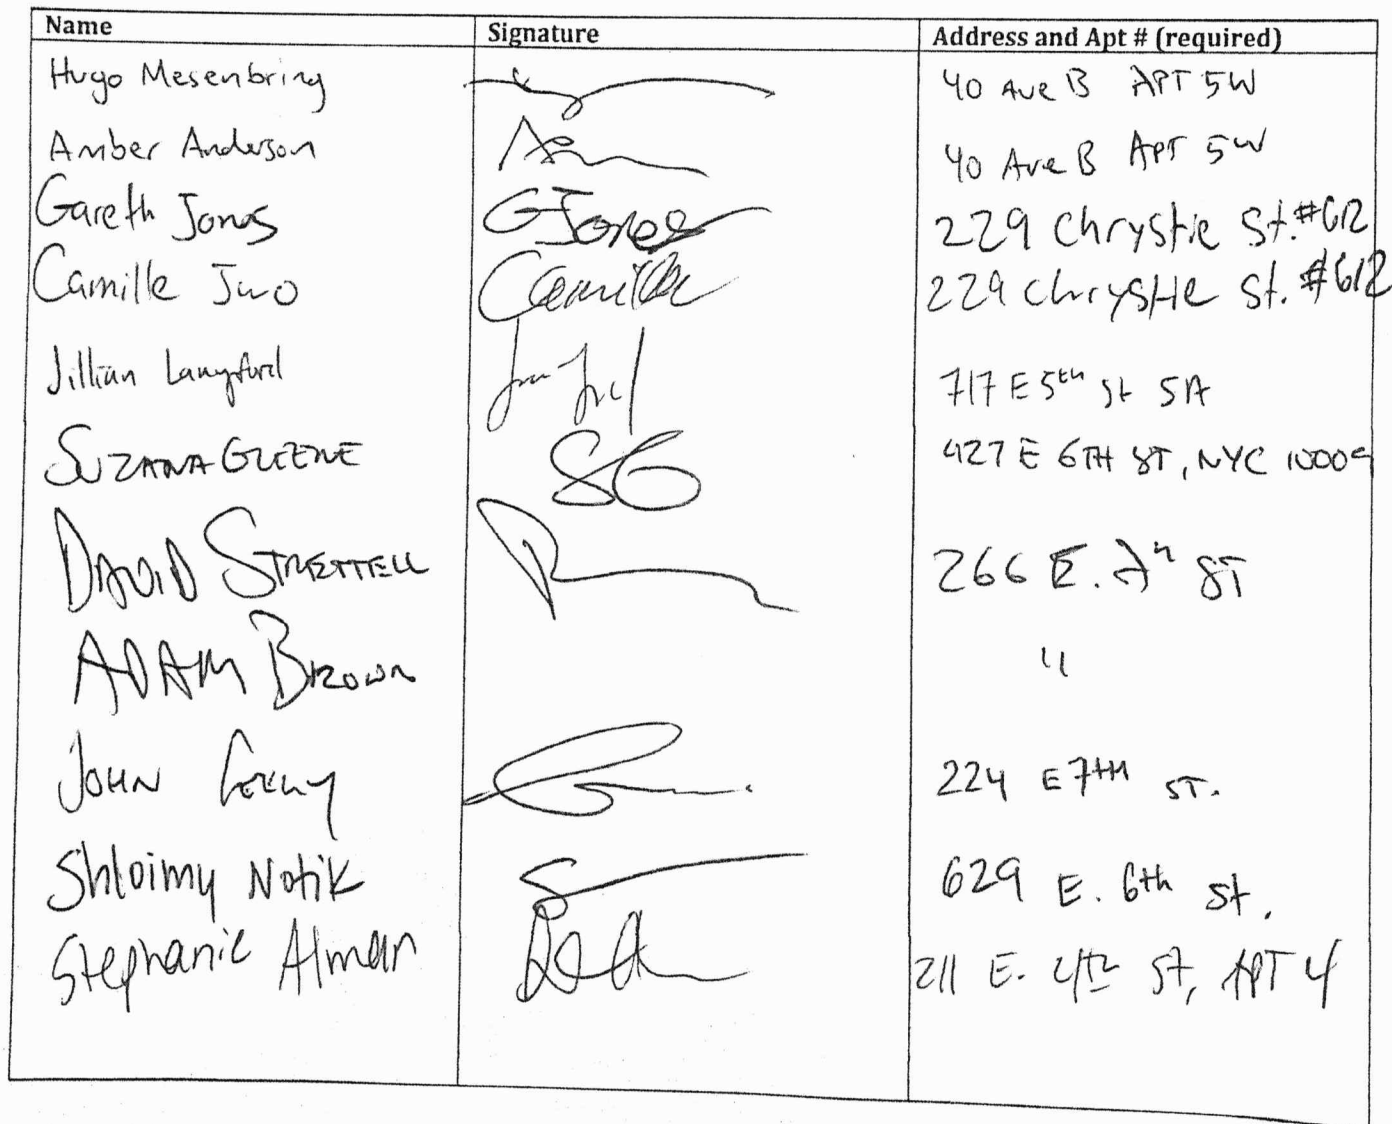 Name Signature Address and Apt # (required)
Hugo Mesenbring 40 Ave B APT 5W
Amber Anderson 40 Ave B APT 5W
Gareth Jones GJones 229 Chrystie St. #612
Camille Juo Camille 229 Chrystie St. #612
Jillian Langford 717 E 5th St 5A
SUZANA GREENE SG 427 E 6TH ST, NYC 10009
DAVID STRETTELL 266 E. 7th ST
ADAM BROWN "
JOHN 224 E 7TH ST.
Shloimy Notik 629 E. 6th St.
Stephanie Alman 211 E. 4th St, APT 4